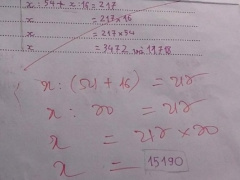 x : 54 + x : 16 = 217
x = 217 × 16
x = 217 × 54
x = 3472 và 11,718
x : (54 + 16) = 217
x : 70 = 217
x = 217 × 70
x = 15190